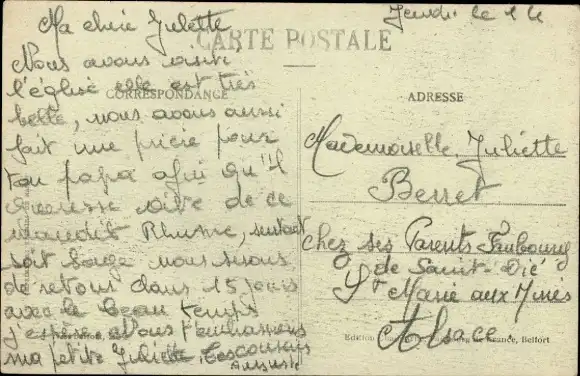 Jeudi le 14
Ma chère Juliette
CARTE POSTALE
Nous avons visité
l'église elle est très
CORRESPONDANCE
belle, nous avons aussi
fait une prière pour
ton papa afin qu'il
vite de ce
maudit Rhume, surtout
soit sage nous serons
de retour dans 15 jours
avec le beau temps
j'espère. Nous t'embrassons
ma petite Juliette, Tes cousins
Auguste
ADRESSE
Mademoiselle Juliette
Berret
chez ses Parents Faubourg
de Saint-Dié
Ste Marie aux Mines
Alsace.
Edition France, Belfort